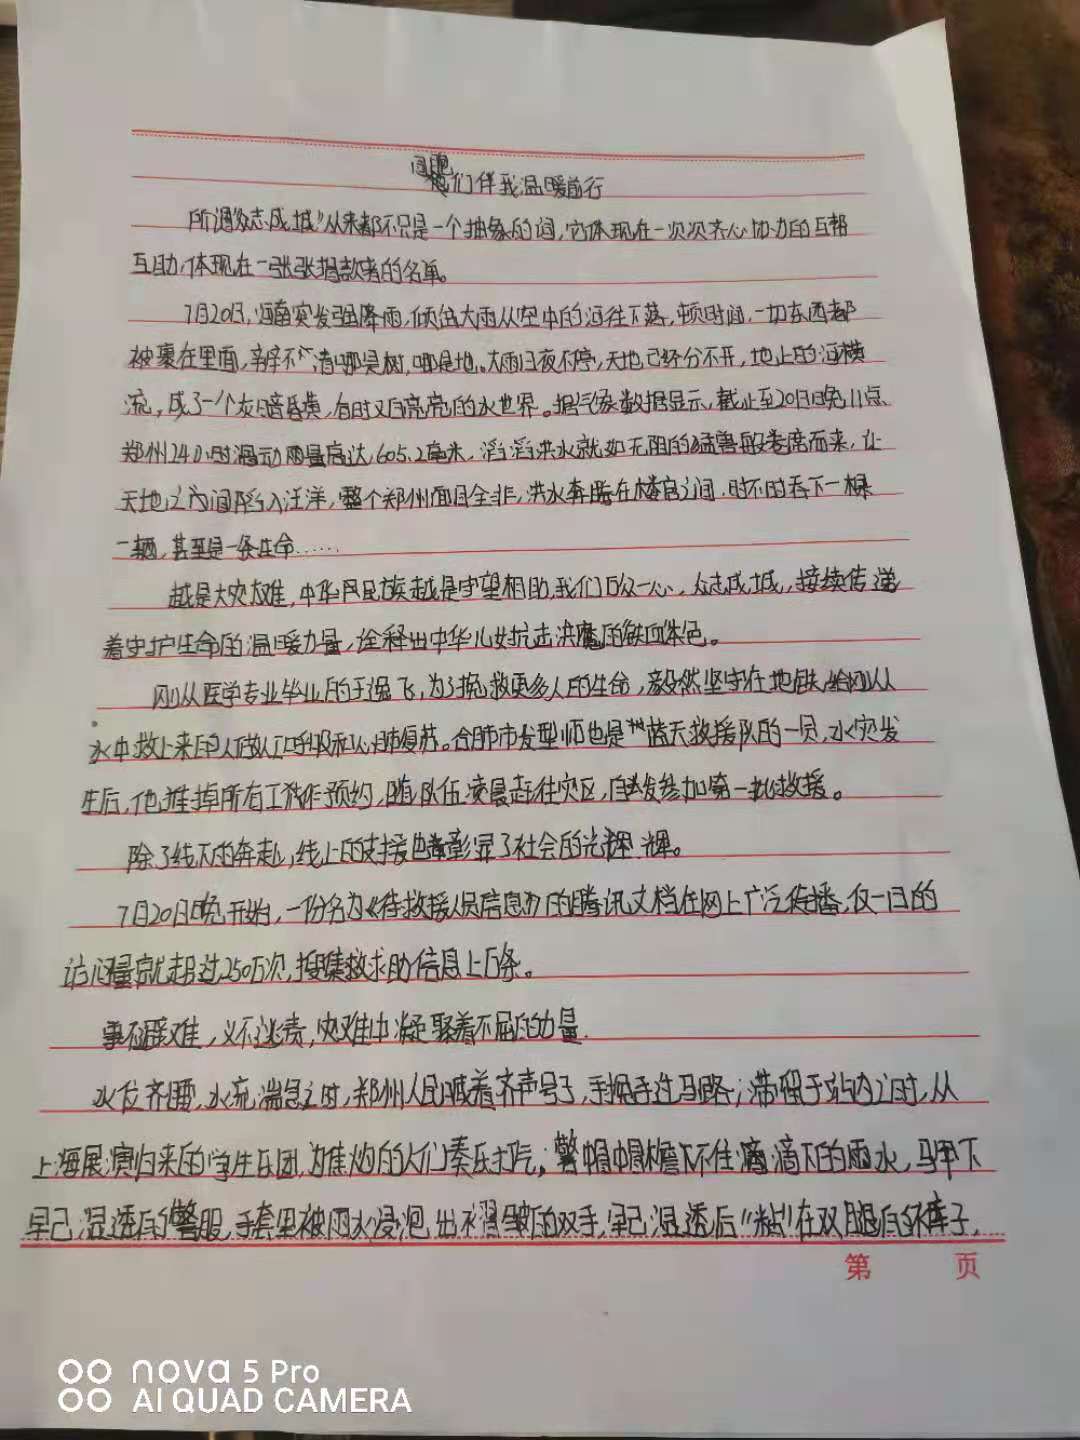 同胞们伴我温暖前行
所谓"众志成城"从来都不只是一个抽象的词,它体现在一次次齐心协力的互帮
互助,体现在一张张捐款者的名单。
7月20日,河南突发强降雨,倾盆大雨从空中的河往下落,顿时间,一切东西都
被裹在里面,辨不清哪是树,哪是地。大雨日夜不停,天地已经分不开,地上的河横
流,成了一个灰暗昏黄,有时又白亮亮的水世界。据气象数据显示,截止至20日晚11点
郑州24小时漏动雨量高达605.2毫米,滔滔洪水就如无阻的猛兽般卷席而来,让
天地之间陷入汪洋,整个郑州面目全非,洪水奔腾在楼宫之间,时不时吞下一棵
一辆,甚至是一条生命……
越是大灾大难,中华民族越是守望相助,我们众一心、众志成城,接续传递
着守护生命的温暖力量,诠释出中华儿女抗击洪魔的铁血本色。
刚从医学专业毕业的于逸飞,为了挽救更多人的生命,毅然坚守在地铁口给从
水中救上来的人做人工呼吸和心肺复苏。合肥市发型师也是蓝天救援队的一员,水灾发
生后,他推掉所有工作预约,随队伍凌晨赶往灾区,自发参加第一批救援。
除了线下的奔赴,线上的支援也彰显了社会的光辉。
7月20日晚开始,一份名为《待救援人员信息》的腾讯文档在网上广泛传播,仅一日的
访问量就超过250万次,搜集救求助信息上万条。
事不避难,义不逃责,灾难中凝聚着不屈的力量.
水位齐腰,水流湍急之时,郑州人民喊着齐声号子,手挽手过马路;滞留于站内之时,从
上海展演归来的学生乐团,为焦灼的人们奏乐打气;警帽帽檐下不住滴下的雨水,马甲下
早已湿透的警服,手套里被雨水浸泡出褶皱的双手,早已湿透后"粘"在双腿的裤子,
第 页
nova 5 Pro
AI QUAD CAMERA